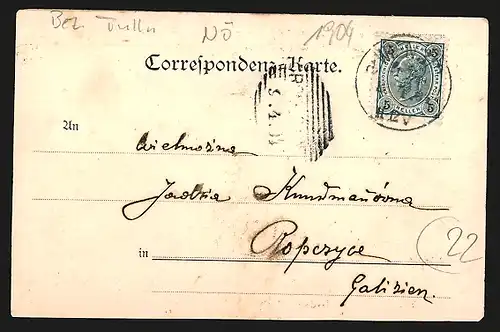 Bez. Tulln NÖ 1904
Correspondenz-Karte.
5 5
An
Wielmożna
Jadzia Kundmanówna
in Ropczyce
Galizien.
22